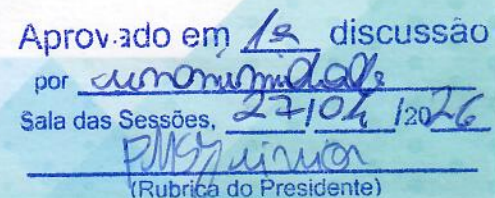 Aprovado em 1ª discussão
por unanimidade
Sala das Sessões, 27/04/2026
(Rubrica do Presidente)